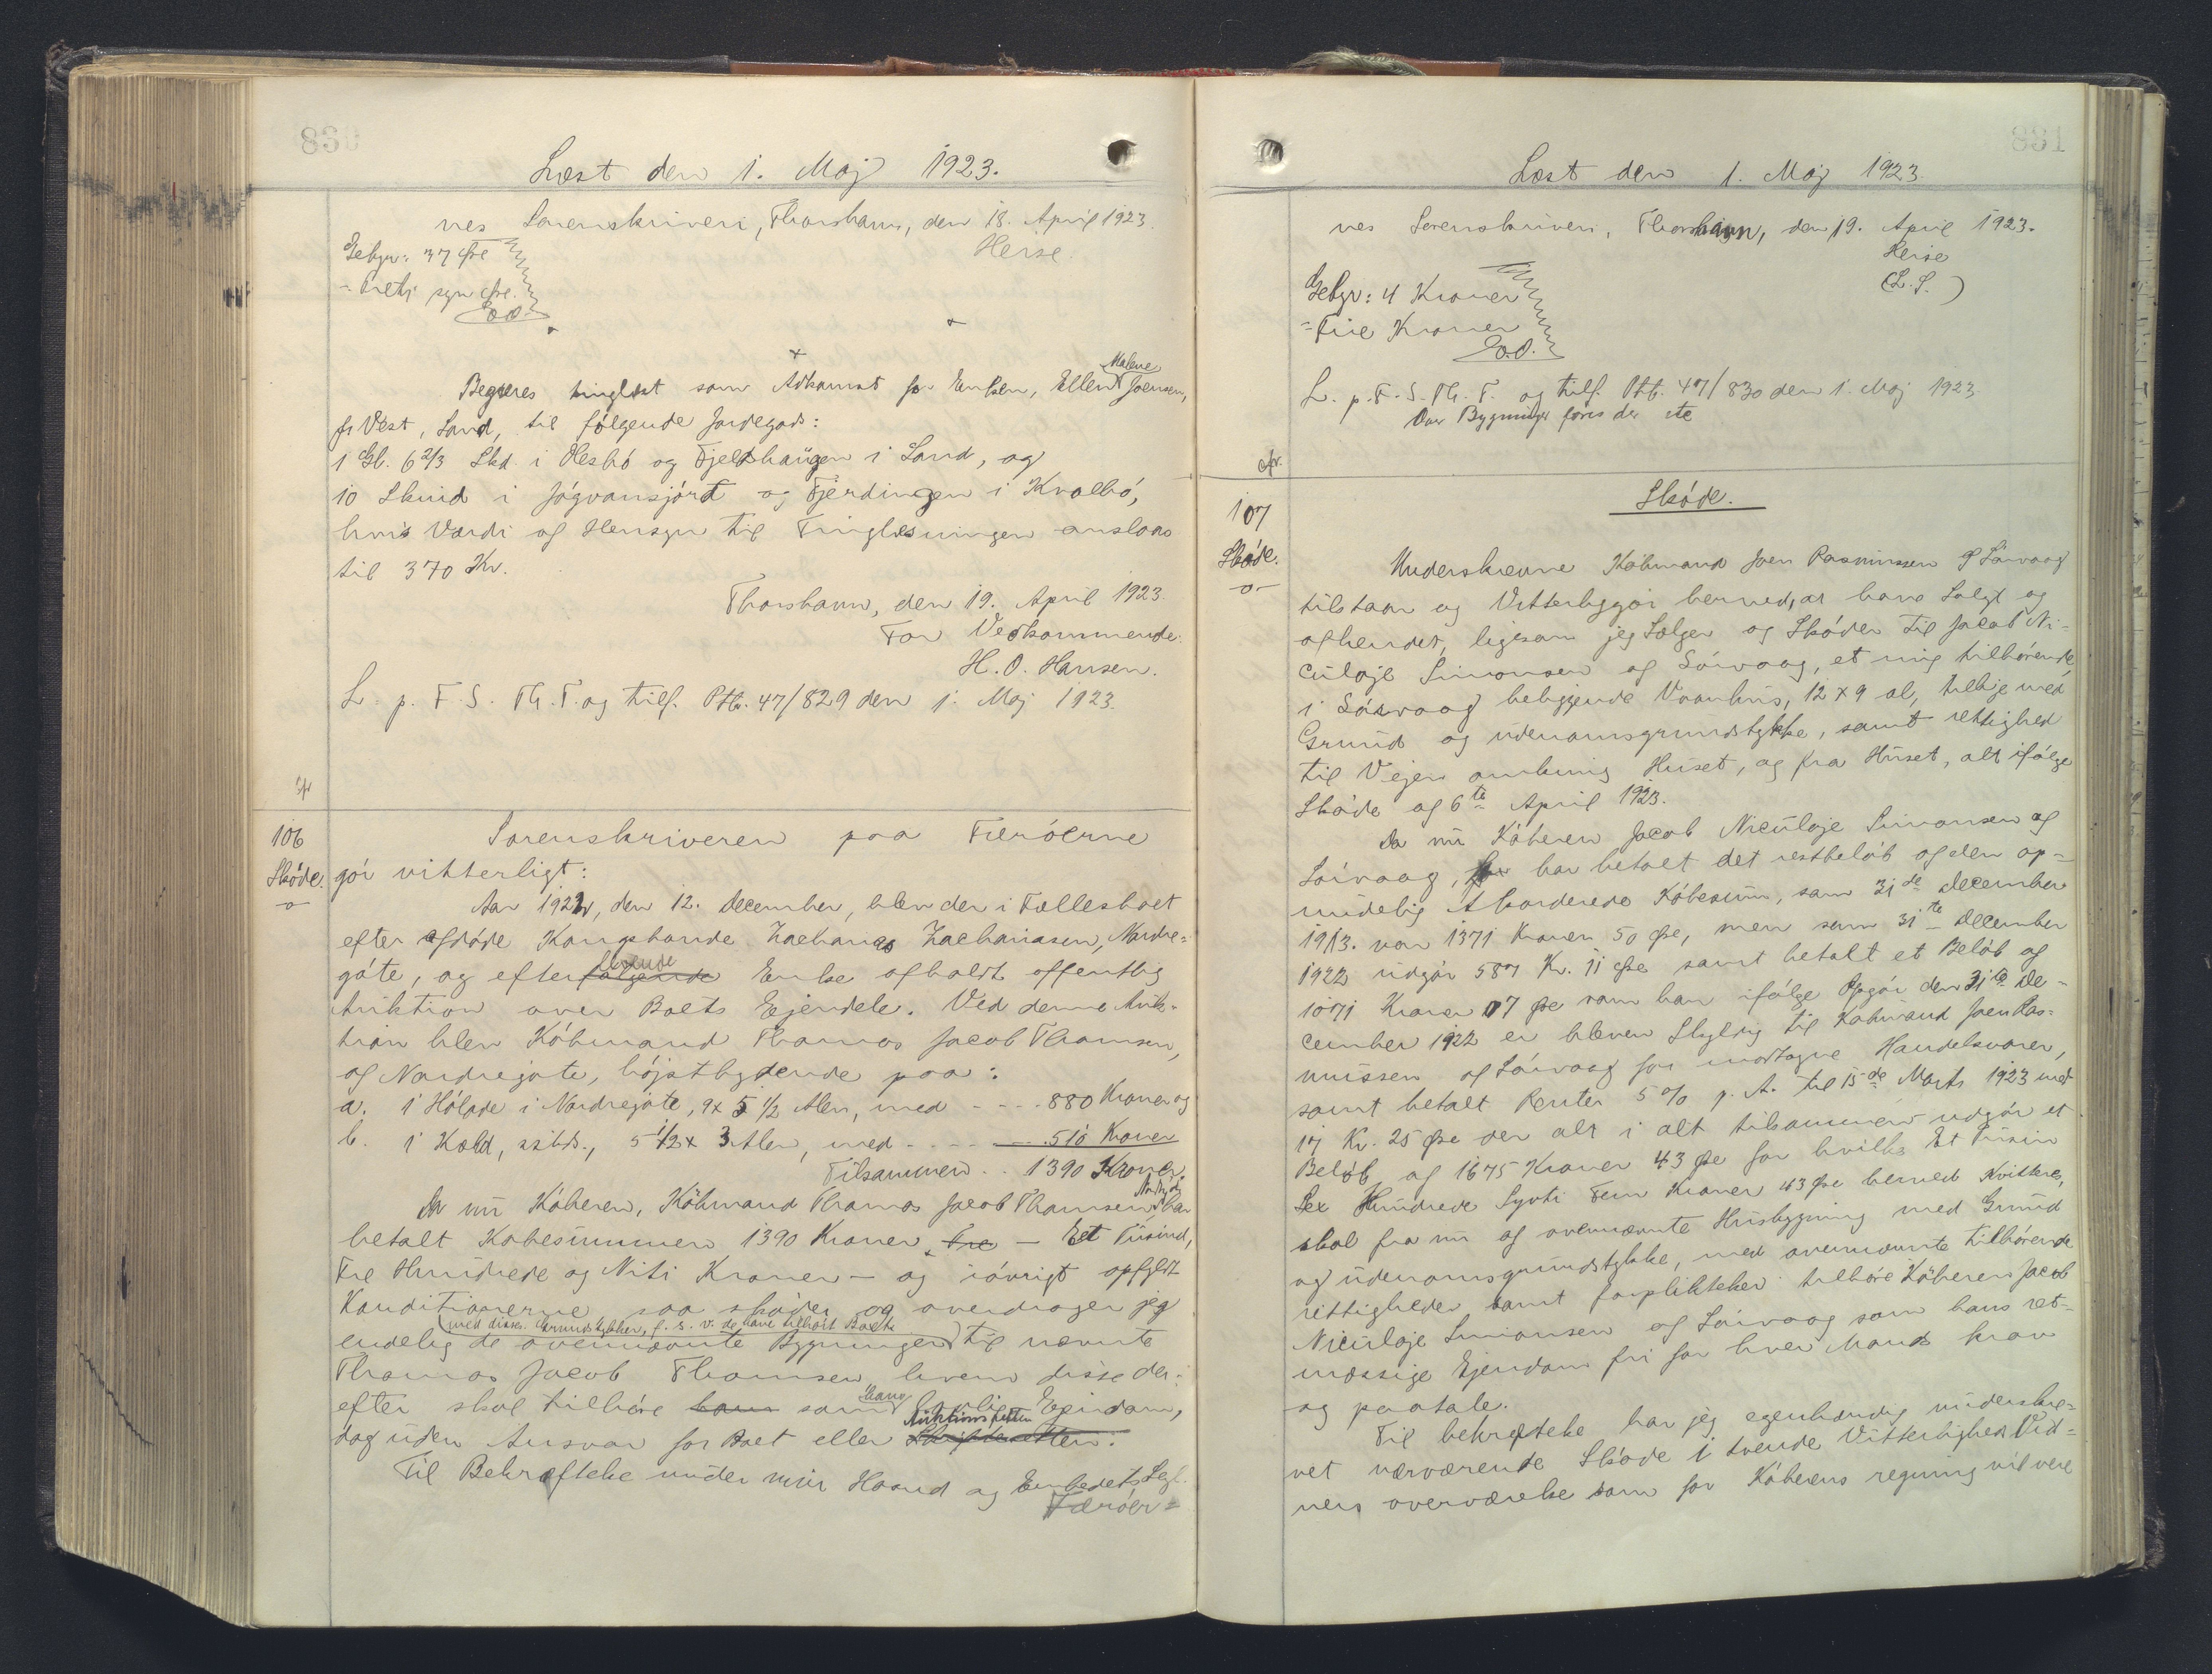 830
Læst den 1. Maj 1923.
nes Sorenskriveri, Thorshavn, den 18. April 1923.
Herse.
Gebyr: 37 Øre
= Treti syv Øre.
E.O.
Begæres tinglæst som Adkomst for Enken, Ellen Malene Joensen,
fr Vest, Sand, til følgende Jordegods:
1 Gl. 6 2/3 Skd. i Ølesbó og Fjeldhaügen i Sand, og
10 Skind i Jógvansjórd og Fjerdingen i Kvalbó,
hvis Værdi af Hensyn til Tinglæsningen anslaas
til 370 Kr.
Thorshavn, den 19. April 1923.
For Vedkommende:
H. O. Hansen.
L. p. F. S. Th. T. og tilf. Ptb. 47/829 den 1. Maj 1923.
106
Skóde.
Sorenskriveren paa Færóerne
gór vitterligt:
Aar 1922, den 12. December, blev der i Fællesboet
efter afdóde Kongsbonde Zacharias Zachariasen, Nordre=
góte, og efterlevende Enke afholdt offentlig
Auktion over Boets Ejendele. Ved denne Auk=
tion blev Kóbmand Thomas Jacob Thomsen,
af Nordregote, hójstbydende paa:
a. 1 Hólade i Nordregóte, 9 x 5 1/2 Alen, med - - - 880 Kroner og
b. 1 Kæld, ssteds., 5 1/2 x 3 Alen, med - - - 510 Kroner
Tilsammen . . 1390 Kroner.
Da nu Kóberen, Kóbmand Thomas Jacob Thomsen, Nordregóte har
betalt Kóbesummen 1390 Kroner, Tre — Et Tüsind,
Tre Hundrede og Niti Kroner — og ióvrigt opfyldt
Konditionerne, saa skóder og overdrager jeg
(med disses Grundstykker, f. s. v. de have tilhórt Boet)
endelig de ovennævnte Bygninger til nævnte
Thomas Jacob Thomsen, hvem disse der=
efter skal tilhóre ham som hans lovlige Ejendom,
dog üden Ansvar for Boet eller Skifteretten Auktionsretten:
Til Bekræftelse under min Haand og Embedets Segl.
Færóer=
831
Læst den 1. Maj 1923.
nes Sorenskriveri, Thorshavn, den 19. April 1923.
Herse
(L. S.)
Gebyr: 4 Kroner
= Fire Kroner
E.O.
L. p. F. S. Th. T. og tilf. Ptb. 47/830 den 1. Maj 1923.
Over Bygninger fóres der ikke
107
Skóde.
Skóde.
Underskrevne Kóbmand Joen Rasmussen af Sórvaag
tilstaar og Vitterliggór herved, at have Solgt og
afhendet, ligesom jeg Sælger og Skóder til Jacob Ni=
culoje Simonsen af Sórvaag, et mig tilhórende,
i Sórvaag beliggende Vaanhus, 12 x 9 al, tillige med
Grund og udenomsgrundstykke, samt rettighed
til Vejen omkring Huset, og fra Huset, alt ifólge
Skóde af 6te April 1923.
Da nu Kóberen Jacob Niculoje Simonsen af
Sórvaag, har betalt det restbelób af den op=
rindelig Akorderede Kóbesum, som 31de December
1913. var 1371 Kroner 50 Øre, men som 31te December
1922 udgór 587 Kr. 11 Øre samt betalt et Belób af
1071 Kroner 07 Øre som han ifólge Opgór den 31te De=
cember 1922 er bleven Skyldig til Kóbmand Joen Ras=
mussen af Sórvaag for modtagne Handelsvarer,
samt betalt Renter 5 % p. A. til 15de Marts 1923 med
17 Kr. 25 Øre der alt i alt tilsammen udgór et
Belób af 1675 Kroner 43 Øre for hvilke Et Tusin
Sex Hundrede Syvti Fem Kroner 43 Øre herved Kvitteres,
skal fra nu af ovennævnte Husbygning med Grund
og udenomsgrundstykke, med ovennævnte tilhórende
rettigheder samt forpliktelser tilhóre Kóberen Jacob
Niculoje Simonsen af Sórvaag som hans ret=
mæssige Ejendom fri for hver Mands krav
og paatale.
Til bekræftelse har jeg egenhændig underskre=
vet nærværende Skóde i tvende Vitterligheds Vid=
ners overværelse som for Kóberens regning vil være